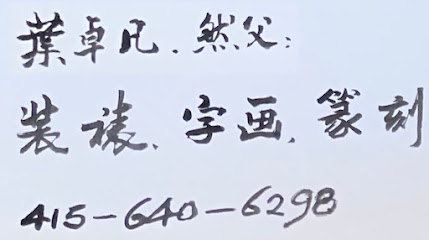 葉卓凡．然父：
装裱、字画、篆刻
415-640-6298